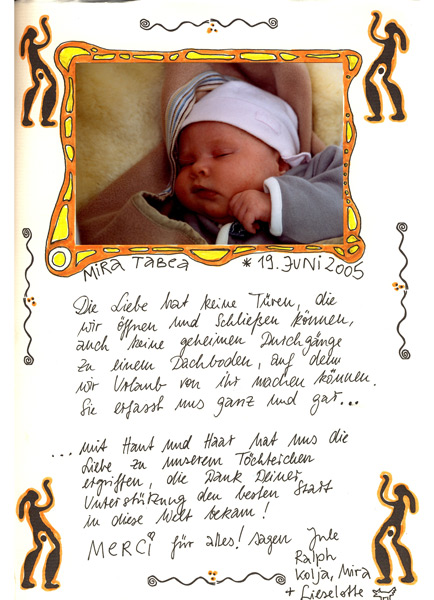 MiRA TABEA * 19. JUNi 2005
Die Liebe hat keine Türen, die
wir öffnen und schließen können,
auch keine geheimen Durchgänge
zu einem Dachboden, auf dem
wir Urlaub von ihr machen können.
Sie erfasst uns ganz und gar...
...mit Haut und Haar hat uns die
Liebe zu unserem Töchterchen
ergriffen, die Dank Deiner
Unterstützung den besten Start
in diese Welt bekam!
MERCi für alles! sagen Jule
Ralph
Kolja, Mira
+ Lieselotte